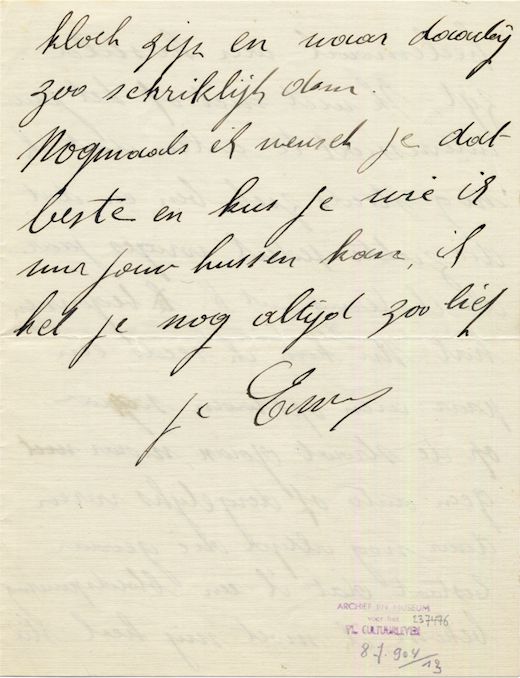 kloek zijn en waar daarbij
zoo schriklijk dom.
Nogmaals ik wensch je dat
beste en kus je wie ik
jouw kussen kan, ik
heb je nog altijd zoo lief
je
ARCHIEF EN MUSEUM
voor het
VL. CULTUURLEVEN
237476
87.904/13